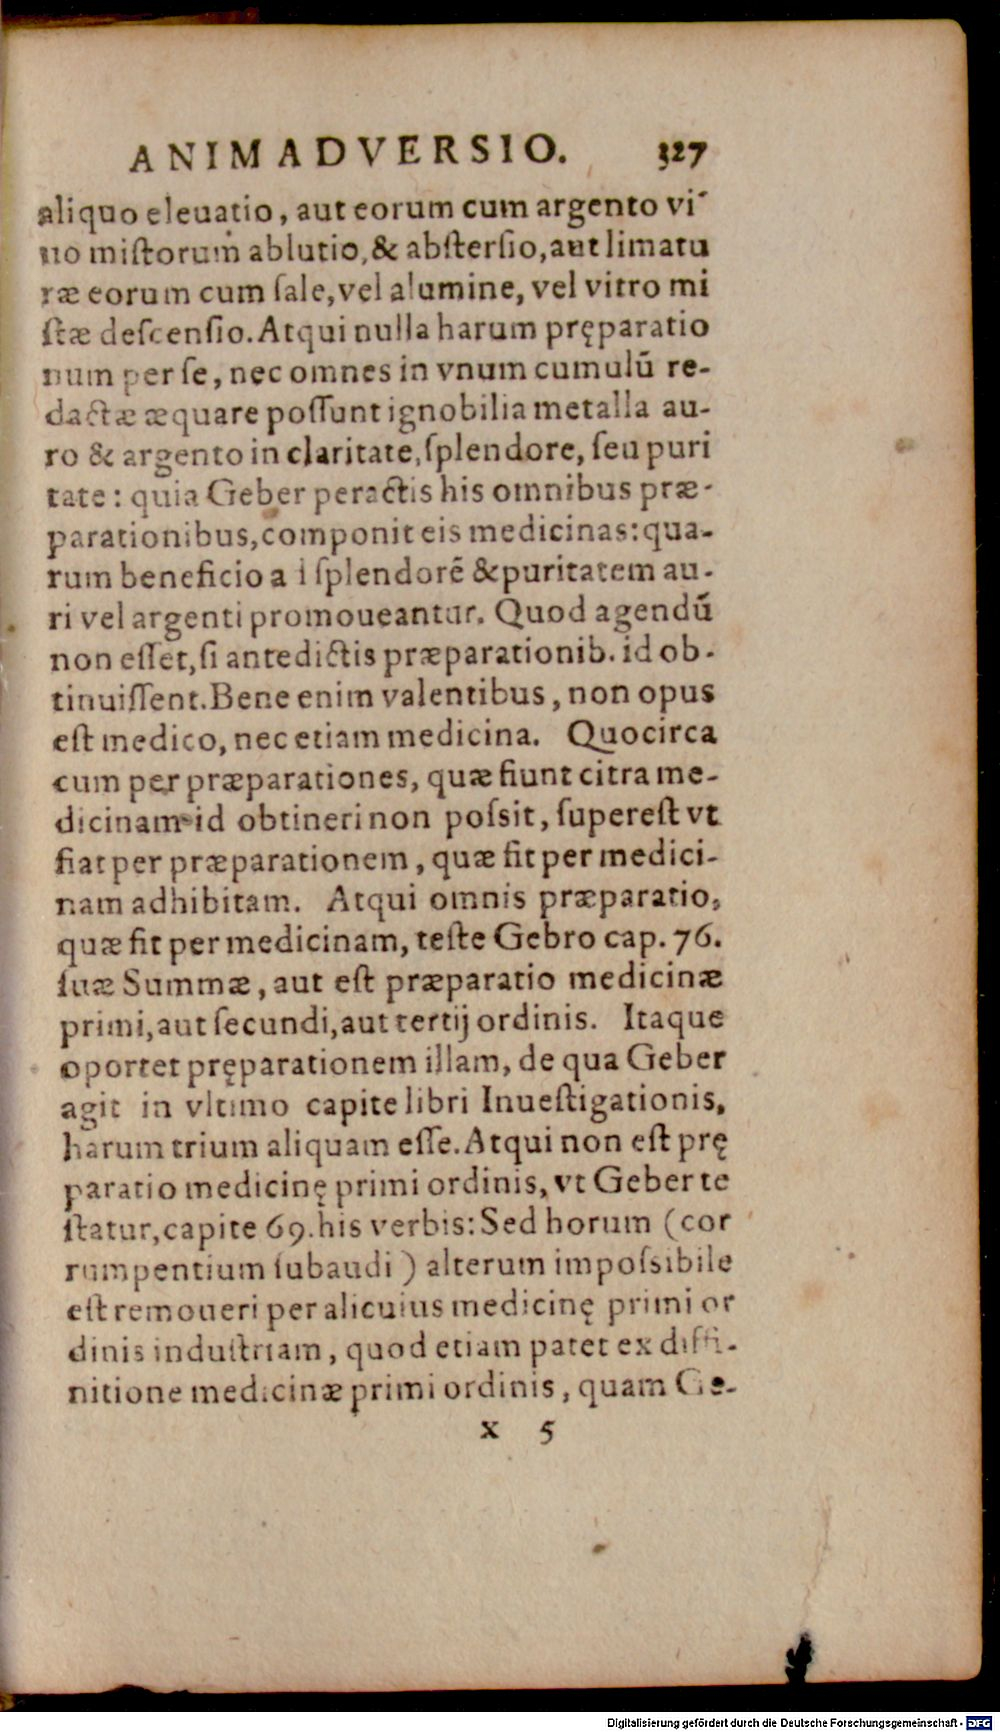 ANIMADVERSIO. 327
aliquo eleuatio, aut eorum cum argento vi-
uo mistorum ablutio, & abstersio, aut limatu
ræ eorum cum sale, vel alumine, vel vitro mi
stæ descensio. Atqui nulla harum pręparatio
num per se, nec omnes in vnum cumulũ re-
dactæ æquare possunt ignobilia metalla au-
ro & argento in claritate, splendore, seu puri
tate: quia Geber peractis his omnibus præ-
parationibus, componit eis medicinas: qua-
rum beneficio a i splendorẽ & puritatem au-
ri vel argenti promoueantur. Quod agendũ
non esset, si antedictis præparationib. id ob-
tinuissent. Bene enim valentibus, non opus
est medico, nec etiam medicina. Quocirca
cum per præparationes, quæ fiunt citra me-
dicinam id obtineri non possit, superest vt
fiat per præparationem, quæ fit per medici-
nam adhibitam. Atqui omnis præparatio,
quæ fit per medicinam, teste Gebro cap. 76.
suæ Summæ, aut est præparatio medicinæ
primi, aut secundi, aut tertij ordinis. Itaque
oportet pręparationem illam, de qua Geber
agit in vltimo capite libri Inuestigationis,
harum trium aliquam esse. Atqui non est prę
paratio medicinę primi ordinis, vt Geber te
statur, capite 69. his verbis: Sed horum (cor
rumpentium subaudi) alterum impossibile
est remoueri per alicuius medicinę primi or
dinis industriam, quod etiam patet ex diffi-
nitione medicinæ primi ordinis, quam Ge-
x 5
Digitalisierung gefördert durch die Deutsche Forschungsgemeinschaft - DFG